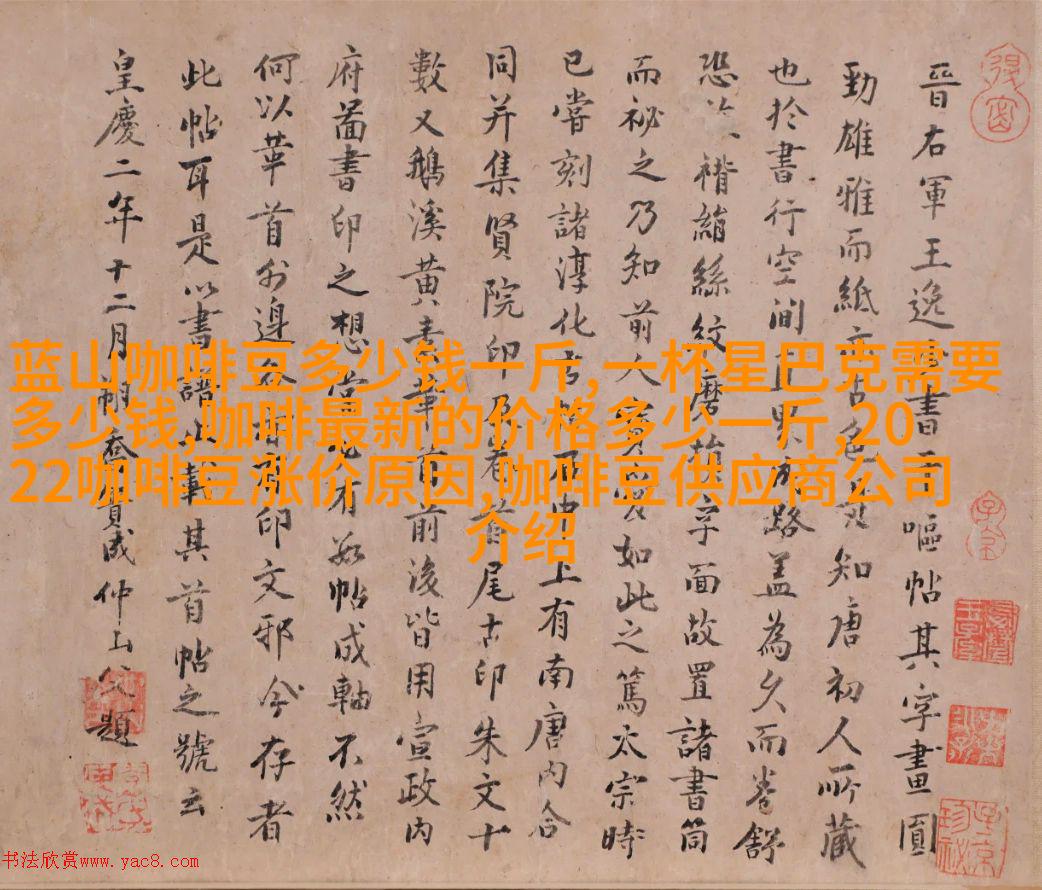 晉右軍王逸書嘔帖其字畫圓
勁雄雅而紙亦古色知唐初人所藏
也於書行空間路蓋為久而卷舒
恐褙絹絲紋磨字面故置諸書筒
而祕之乃知前人如此之篤太宗時
已嘗刻諸淳化上有南唐內合
同并集賢院印尾古印朱文十
數又鵝溪黃素前後皆用宣政內
府啚書印之想帖成軸不然
何以莘首外邊印文邪今存者
此帖耳是以書譜載其首帖之號云
皇慶二年十二月喬簣成仲山父題
蓝山咖啡豆多少钱一斤,一杯星巴克需要
多少钱,咖啡最新的价格多少一斤,20
22咖啡豆涨价原因,咖啡豆供应商公司
介绍
书法欣赏www.yac8.com